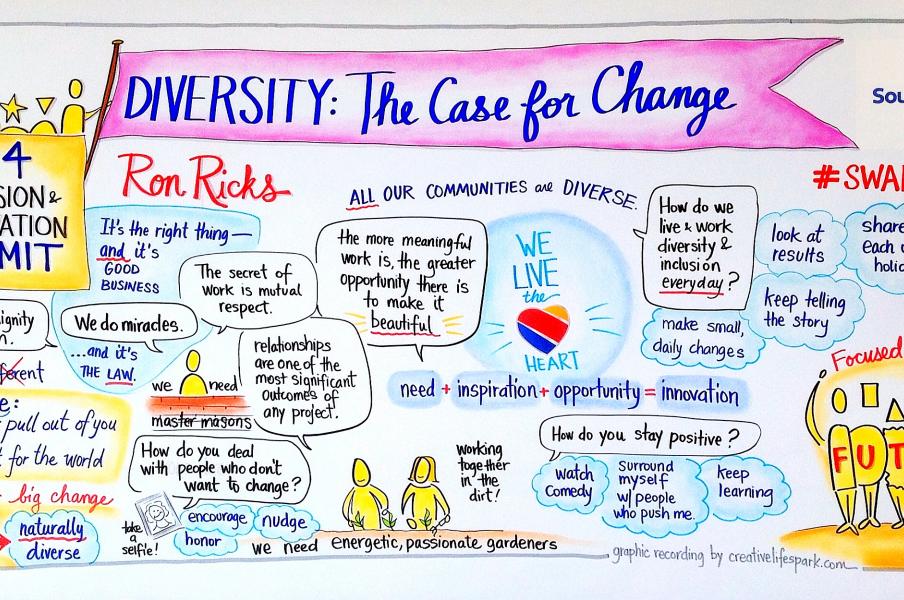 DIVERSITY: The Case for Change
Sou
4
SION &
ATION
MIT
Ron Ricks
It's the right thing —
and it's
GOOD
BUSINESS
ignity
n.
We do miracles.
...and it's
THE LAW.
The secret of
work is mutual
respect.
ALL OUR COMMUNITIES are DIVERSE.
the more meaningful
work is, the greater
opportunity there is
to make it
beautiful
WE
LIVE
the
HEART
How do we
live & work
diversity &
inclusion
everyday?
#SWAD
look at
results
share
each o
holid
keep telling
the story
make small,
daily changes
relationships
are one of the
most significant
outcomes of
any project.
we need
master masons
need + inspiration + opportunity = innovation
ferent
e:
pull out of you
t for the world
big change
naturally
diverse
How do you deal
with people who don't
want to change?
take
a
selfie!
encourage
nudge
honor
we need energetic, passionate gardeners
working
together
in the
dirt!
How do you stay positive?
watch
comedy
surround
myself
w/ people
who push me.
keep
learning
Focused
FUT
graphic recording by creativelifespark.com